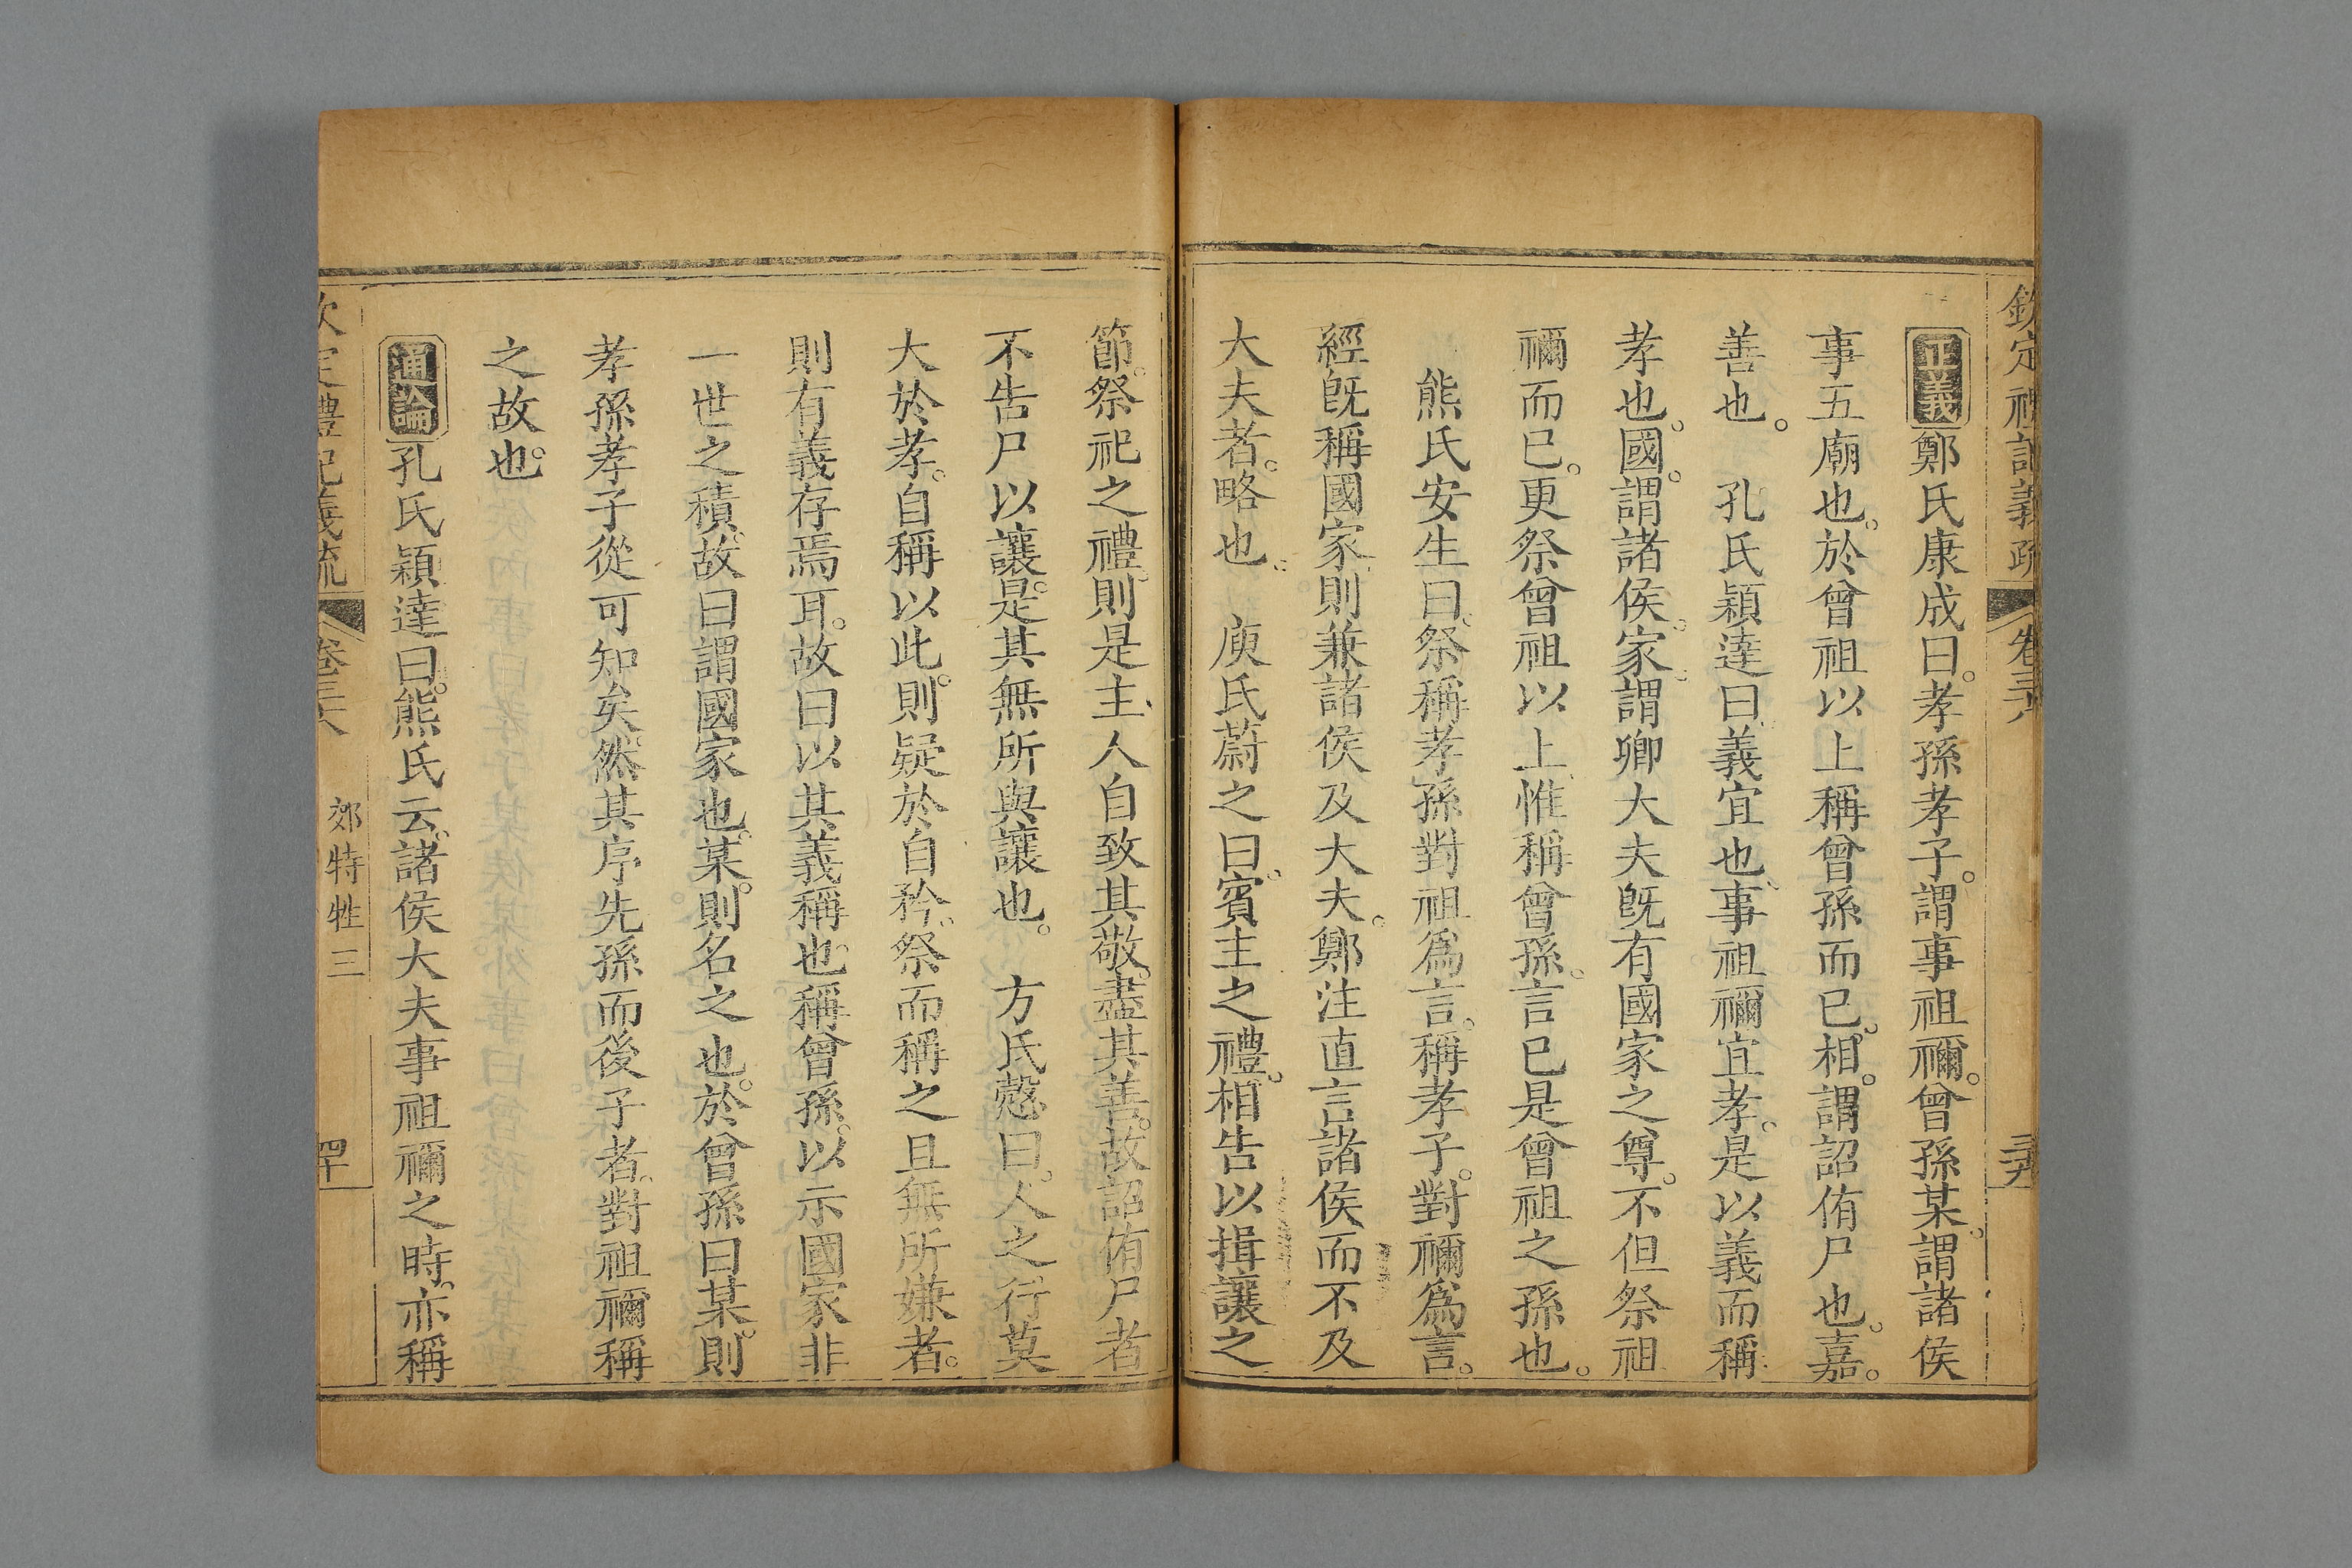 欽定禮記義疏 卷三十六 三十九
正義 鄭氏康成曰。孝孫孝子。謂事祖禰。曾孫某。謂諸侯
事五廟也。於曾祖以上稱曾孫而已。相。謂詔侑尸也。嘉。
善也。 孔氏穎達曰。義宜也。事祖禰宜孝。是以義而稱
孝也。國。謂諸侯。家。謂卿大夫既有國家之尊。不但祭祖
禰而已。更祭曾祖以上惟稱曾孫。言已是曾祖之孫也。
熊氏安生曰。祭稱孝孫對祖爲言。稱孝子。對禰爲言。
經既稱國家則兼諸侯及大夫。鄭注直言諸侯而不及
大夫者。略也。 庾氏蔚之曰。賓主之禮。相告以揖讓之
節。祭祀之禮。則是主人自致其敬。盡其善。故詔侑尸者
不告尸以讓。是其無所與讓也。 方氏慤曰。人之行莫
大於孝。自稱以此。則疑於自矜。祭而稱之且無所嫌者。
則有義存焉耳。故曰以其義稱也。稱曾孫。以示國家非
一世之積。故曰謂國家也。某。則名之也。於曾孫曰某。則
孝孫孝子從可知矣。然其序先孫而後子者。對祖禰稱
之故也。
通論 孔氏穎達曰。熊氏云。諸侯大夫事祖禰之時。亦稱
欽定禮記義疏 卷三十六 郊特牲三 四十